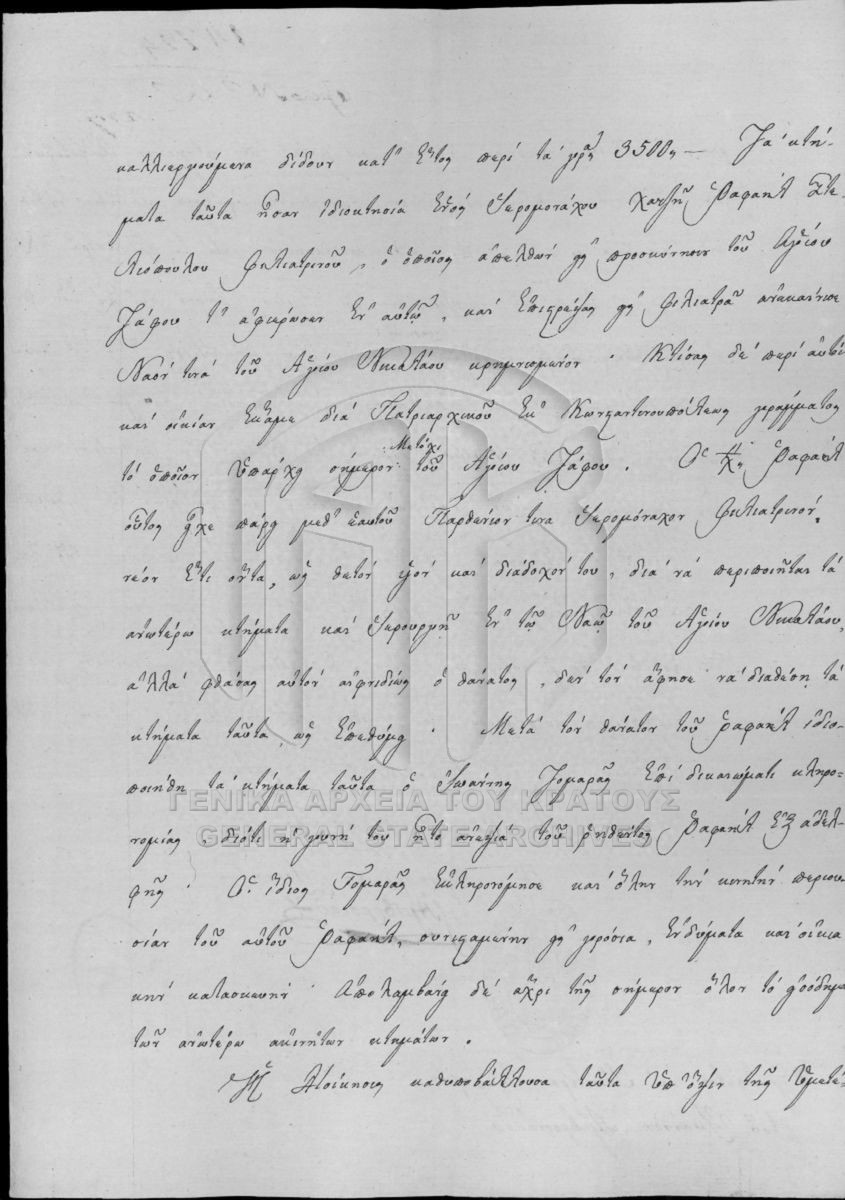 καλλιεργούμενα δίδουν κατ' ἔτος περί τά γρ. 3500, — Τά κτή-
ματα ταῦτα ἦσαν ἰδιοκτησία ἑνός Ἱερομονάχου Χατζῆ Ῥαφαήλ Στε
λιόπουλου Φιλιατρινοῦ, ὁ ὁποῖος ἀπελθών εἰς προσκύνησιν τοῦ Ἁγίου
Τάφου τ' ἀφιέρωσεν ἐν αὐτῷ, καί ἐπιστρέψας εἰς Φιλιατρά ἀνεκαίνισε
Ναόν τινά τοῦ Ἁγίου Νικολάου κρημνισμένον. Κτίσας δέ περί αὐτόν
καί οἰκίαν ἔκαμε διά Πατριαρχικοῦ ἐκ Κωνσταντινουπόλεως γράμματος
τό ὁποῖον ὑπάρχει σήμερον Μετόχι τοῦ Ἁγίου Τάφου. Ὁ Χ. Ῥαφαήλ
οὗτος εἶχε πάρει μεθ' ἑαυτοῦ Παρθένιον τινα Ἱερομόναχον Φιλιατρινόν,
νέον ἔτι ὄντα, ὡς θετόν υἱόν καί διάδοχόν του, διά νά περιποιῆται τά
ἀνωτέρω κτήματα καί ἱερουργῇ ἐν τῷ Ναῷ τοῦ Ἁγίου Νικολάου,
ἀλλά φθάσας αὐτόν αἰφνιδίως ὁ θάνατος, δέν τόν ἄφησε νά διαθέσῃ τά
κτήματα ταῦτα, ὡς ἐπεθύμει. Μετά τόν θάνατον τοῦ Ῥαφαήλ ἰδιο-
ποιήθη τά κτήματα ταῦτα ὁ Ἰωάννης Γομαρᾶς ἐπί δικαιώματι κληρο-
νομίας, διότι ἡ γυνή του ἦτο ἀνεψιά τοῦ ῥηθέντος Ῥαφαήλ ἐξ ἀδελ-
φῆς. Ὁ ἴδιος Γομαρᾶς ἐκληρονόμησε καί ὅλην τήν κινητήν περιου-
σίαν τοῦ αὐτοῦ Ῥαφαήλ, συνισταμένην εἰς γρόσια, ἐνδύματα καί οἰκια
κήν κατασκευήν. Ἀπολαμβάνει δέ ἄχρι τῆς σήμερον ὅλον τό εἰσόδημα
τῶν ἀνωτέρω ἀκινήτων κτημάτων.
Ἡ Διοίκησις καθυποβάλλουσα ταῦτα ὑπ' ὄψιν τῆς Ὑμετέ-
ΓΕΝΙΚΑ ΑΡΧΕΙΑ ΤΟΥ ΚΡΑΤΟΥΣ
GENERAL STATE ARCHIVES